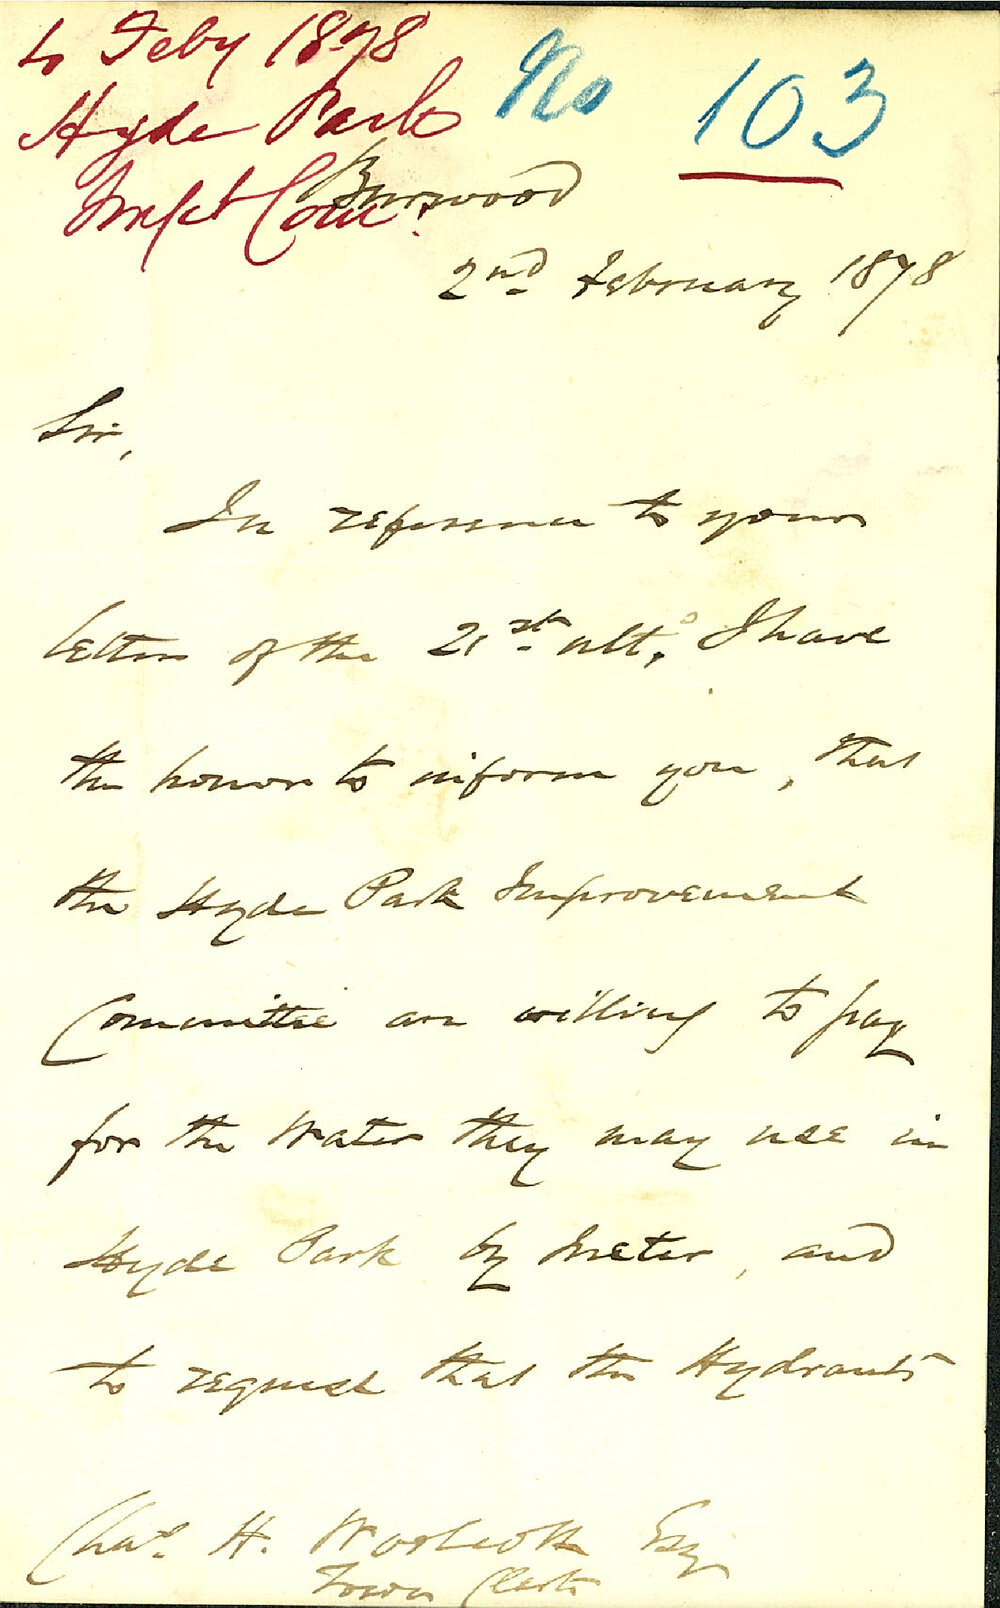 4 Feby 1878
No 103
Hyde Park
Impt Com.
Burwood
2nd February 1878
Sir,
In reference to your
letter of the 21st ulto, I have
the honor to inform you, that
the Hyde Park Improvement
Committee are willing to pay
for the Water they may use in
Hyde Park by Meter, and
to request that the Hydrants
Chas. H. Woolcott Esq
Town Clerk